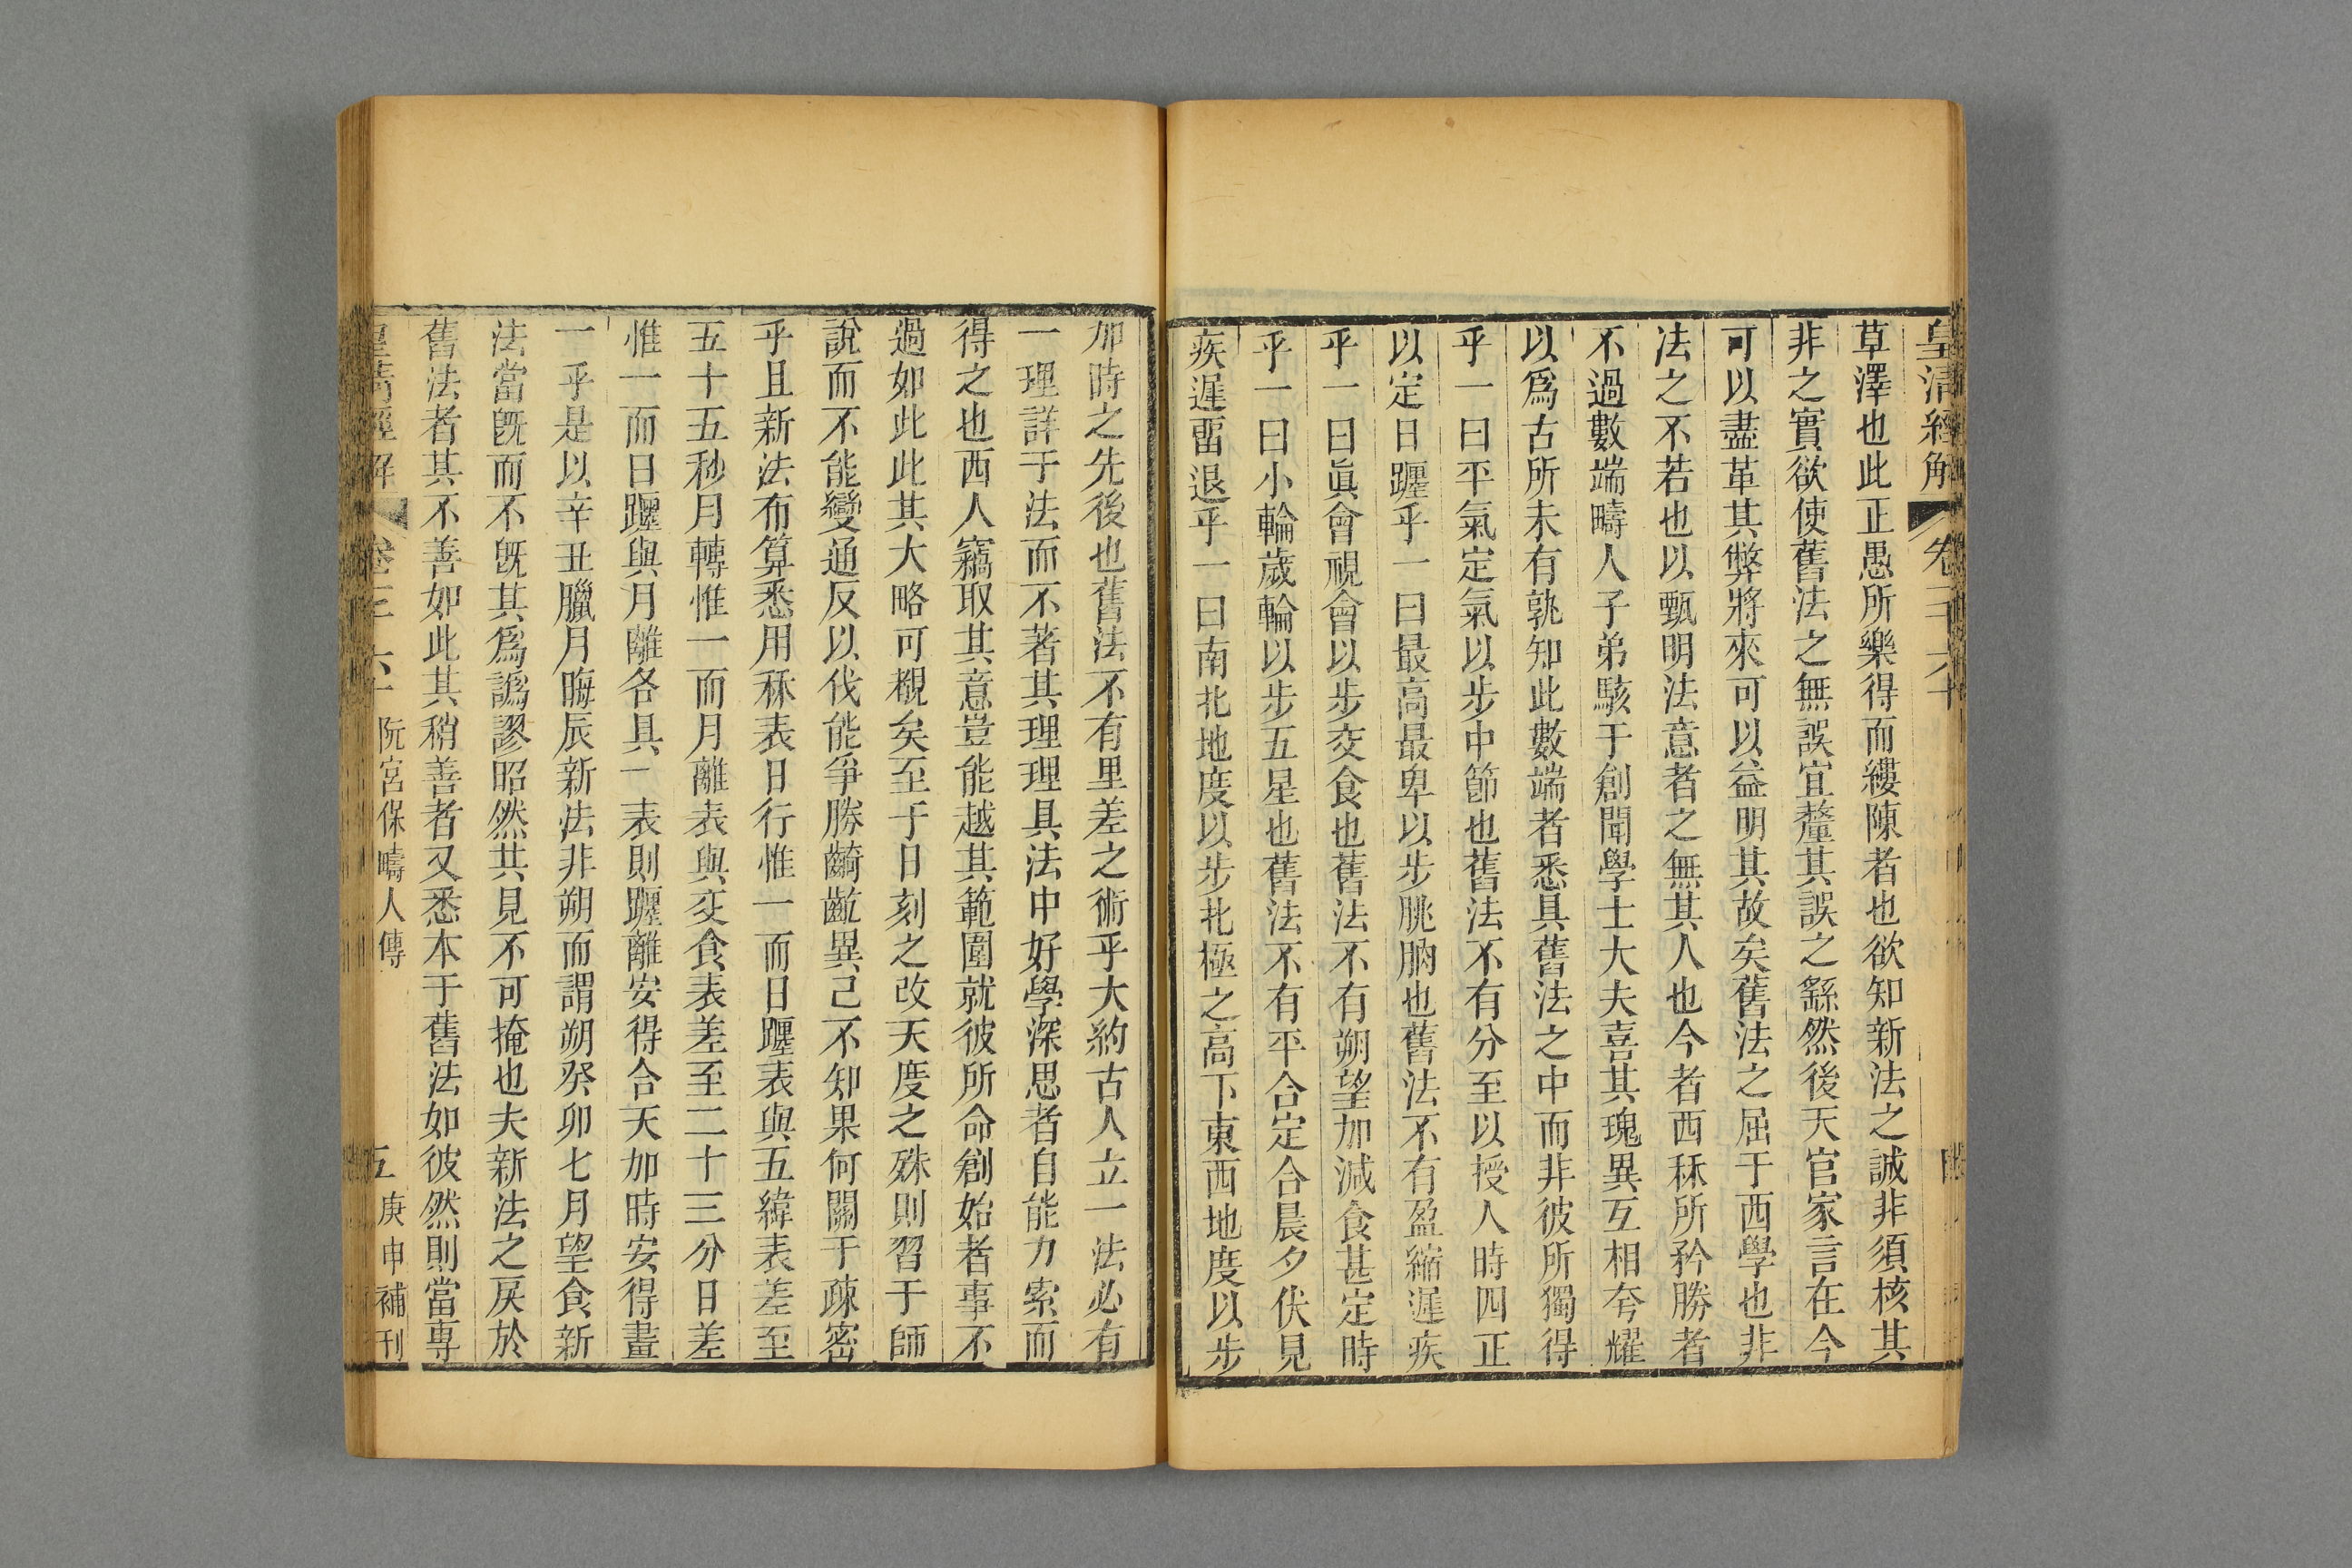 皇清經解
草澤也此正愚所樂得而縷陳者也欲知新法之誠非須核其
非之實欲使舊法之無誤宜釐其誤之繇然後天官家言在今
可以盡革其弊將來可以益明其故矣舊法之屈于西學也非
法之不若也以甄明法意者之無其人也今者西秝所矜勝者
不過數端疇人子弟駭于創聞學士大夫喜其瑰異互相夸耀
以爲古所未有孰知此數端者悉具舊法之中而非彼所獨得
乎一曰平氣定氣以步中節也舊法不有分至以授人時四正
以定日躔乎一曰最高最卑以步朓朒也舊法不有盈縮遲疾
乎一曰眞會視會以步交食也舊法不有朔望加減食甚定時
乎一曰小輪歲輪以步五星也舊法不有平合定合晨夕伏見
疾遲畱退乎一曰南北地度以步北極之高下東西地度以步
加時之先後也舊法不有里差之術乎大約古人立一法必有
一理詳于法而不著其理理具法中好學深思者自能力索而
得之也西人竊取其意豈能越其範圍就彼所命創始者事不
過如此此其大略可覩矣至于日刻之改天度之殊則習于師
說而不能變通反以伐能爭勝齮齕異己不知果何關于疎密
乎且新法布算悉用秝表日行惟一而日躔表與五緯表差至
五十五秒月轉惟一而月離表與交食表差至二十三分日差
惟一而日躔與月離各具一表則躔離安得合天加時安得畫
一乎是以辛丑臘月晦辰新法非朔而謂朔癸卯七月望食新
法當旣而不旣其爲譌謬昭然共見不可掩也夫新法之戾於
舊法者其不善如此其稍善者又悉本于舊法如彼然則當專
皇清經解 阮宮保疇人傳 五 庚申補刊